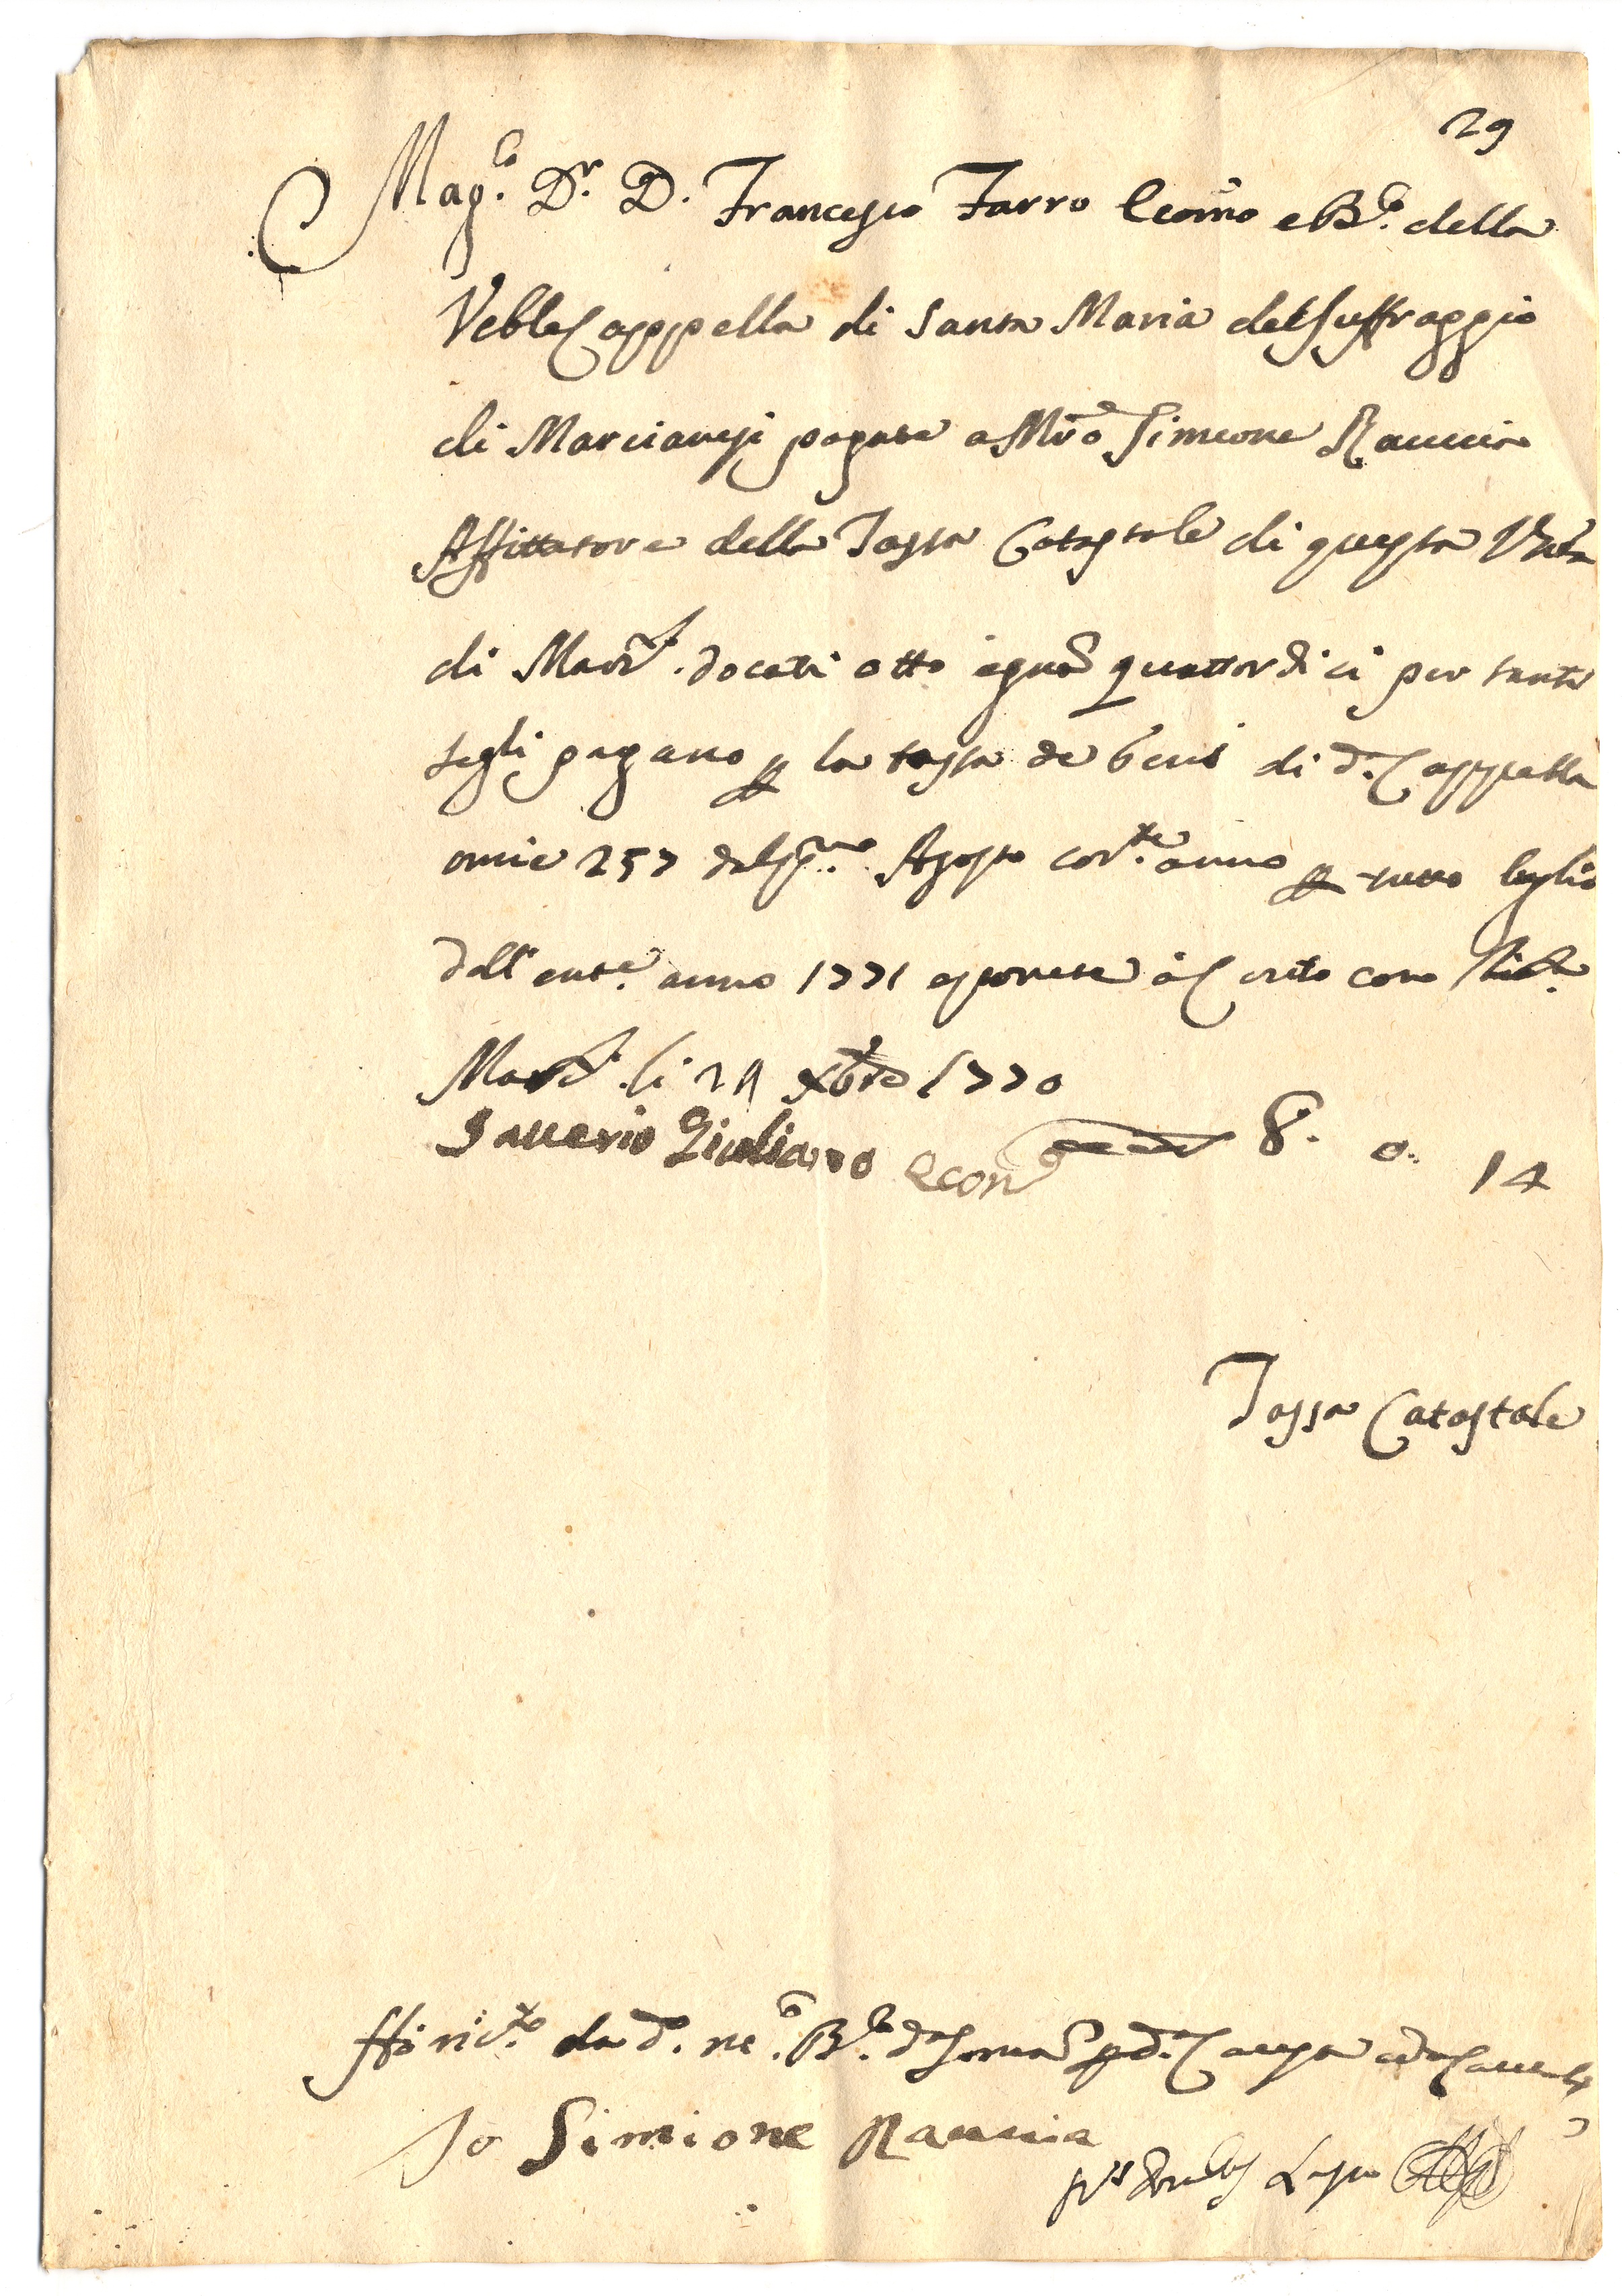 29
Mag.co D.r D. Francesco Farro Econo e B.o della
Veble Cappella di Santa Maria del Suffraggio
di Marcianesi pagate a Mro Simeone Raucci
Affittatore della Tassa Catastale di questa Unità
di Marc. docati otto e gna quattordici per tanti
segli pagano p la tassa de beni di d.a Cappella
oncie 257 dal p.mo Agosto cor.te anno p tutto luglio
dell'ent.e anno 1771 e ponete à Conto con Ric.a
Marc. li 24 Xbre 1770
Saverio Giuliano Econo 8. 0. 14
Tassa Catastale
Hò ric.to da d.o
Io Simione Raucci